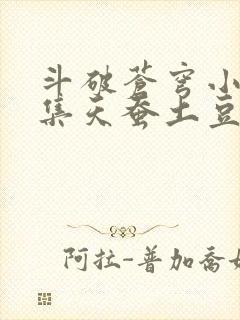 斗破苍穹小
集天蚕土豆
阿拉-普加乔